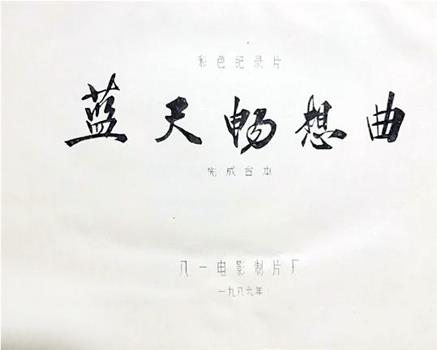 彩色纪录片
蓝天畅想曲
完成台本
八一电影制片厂
一九八六年